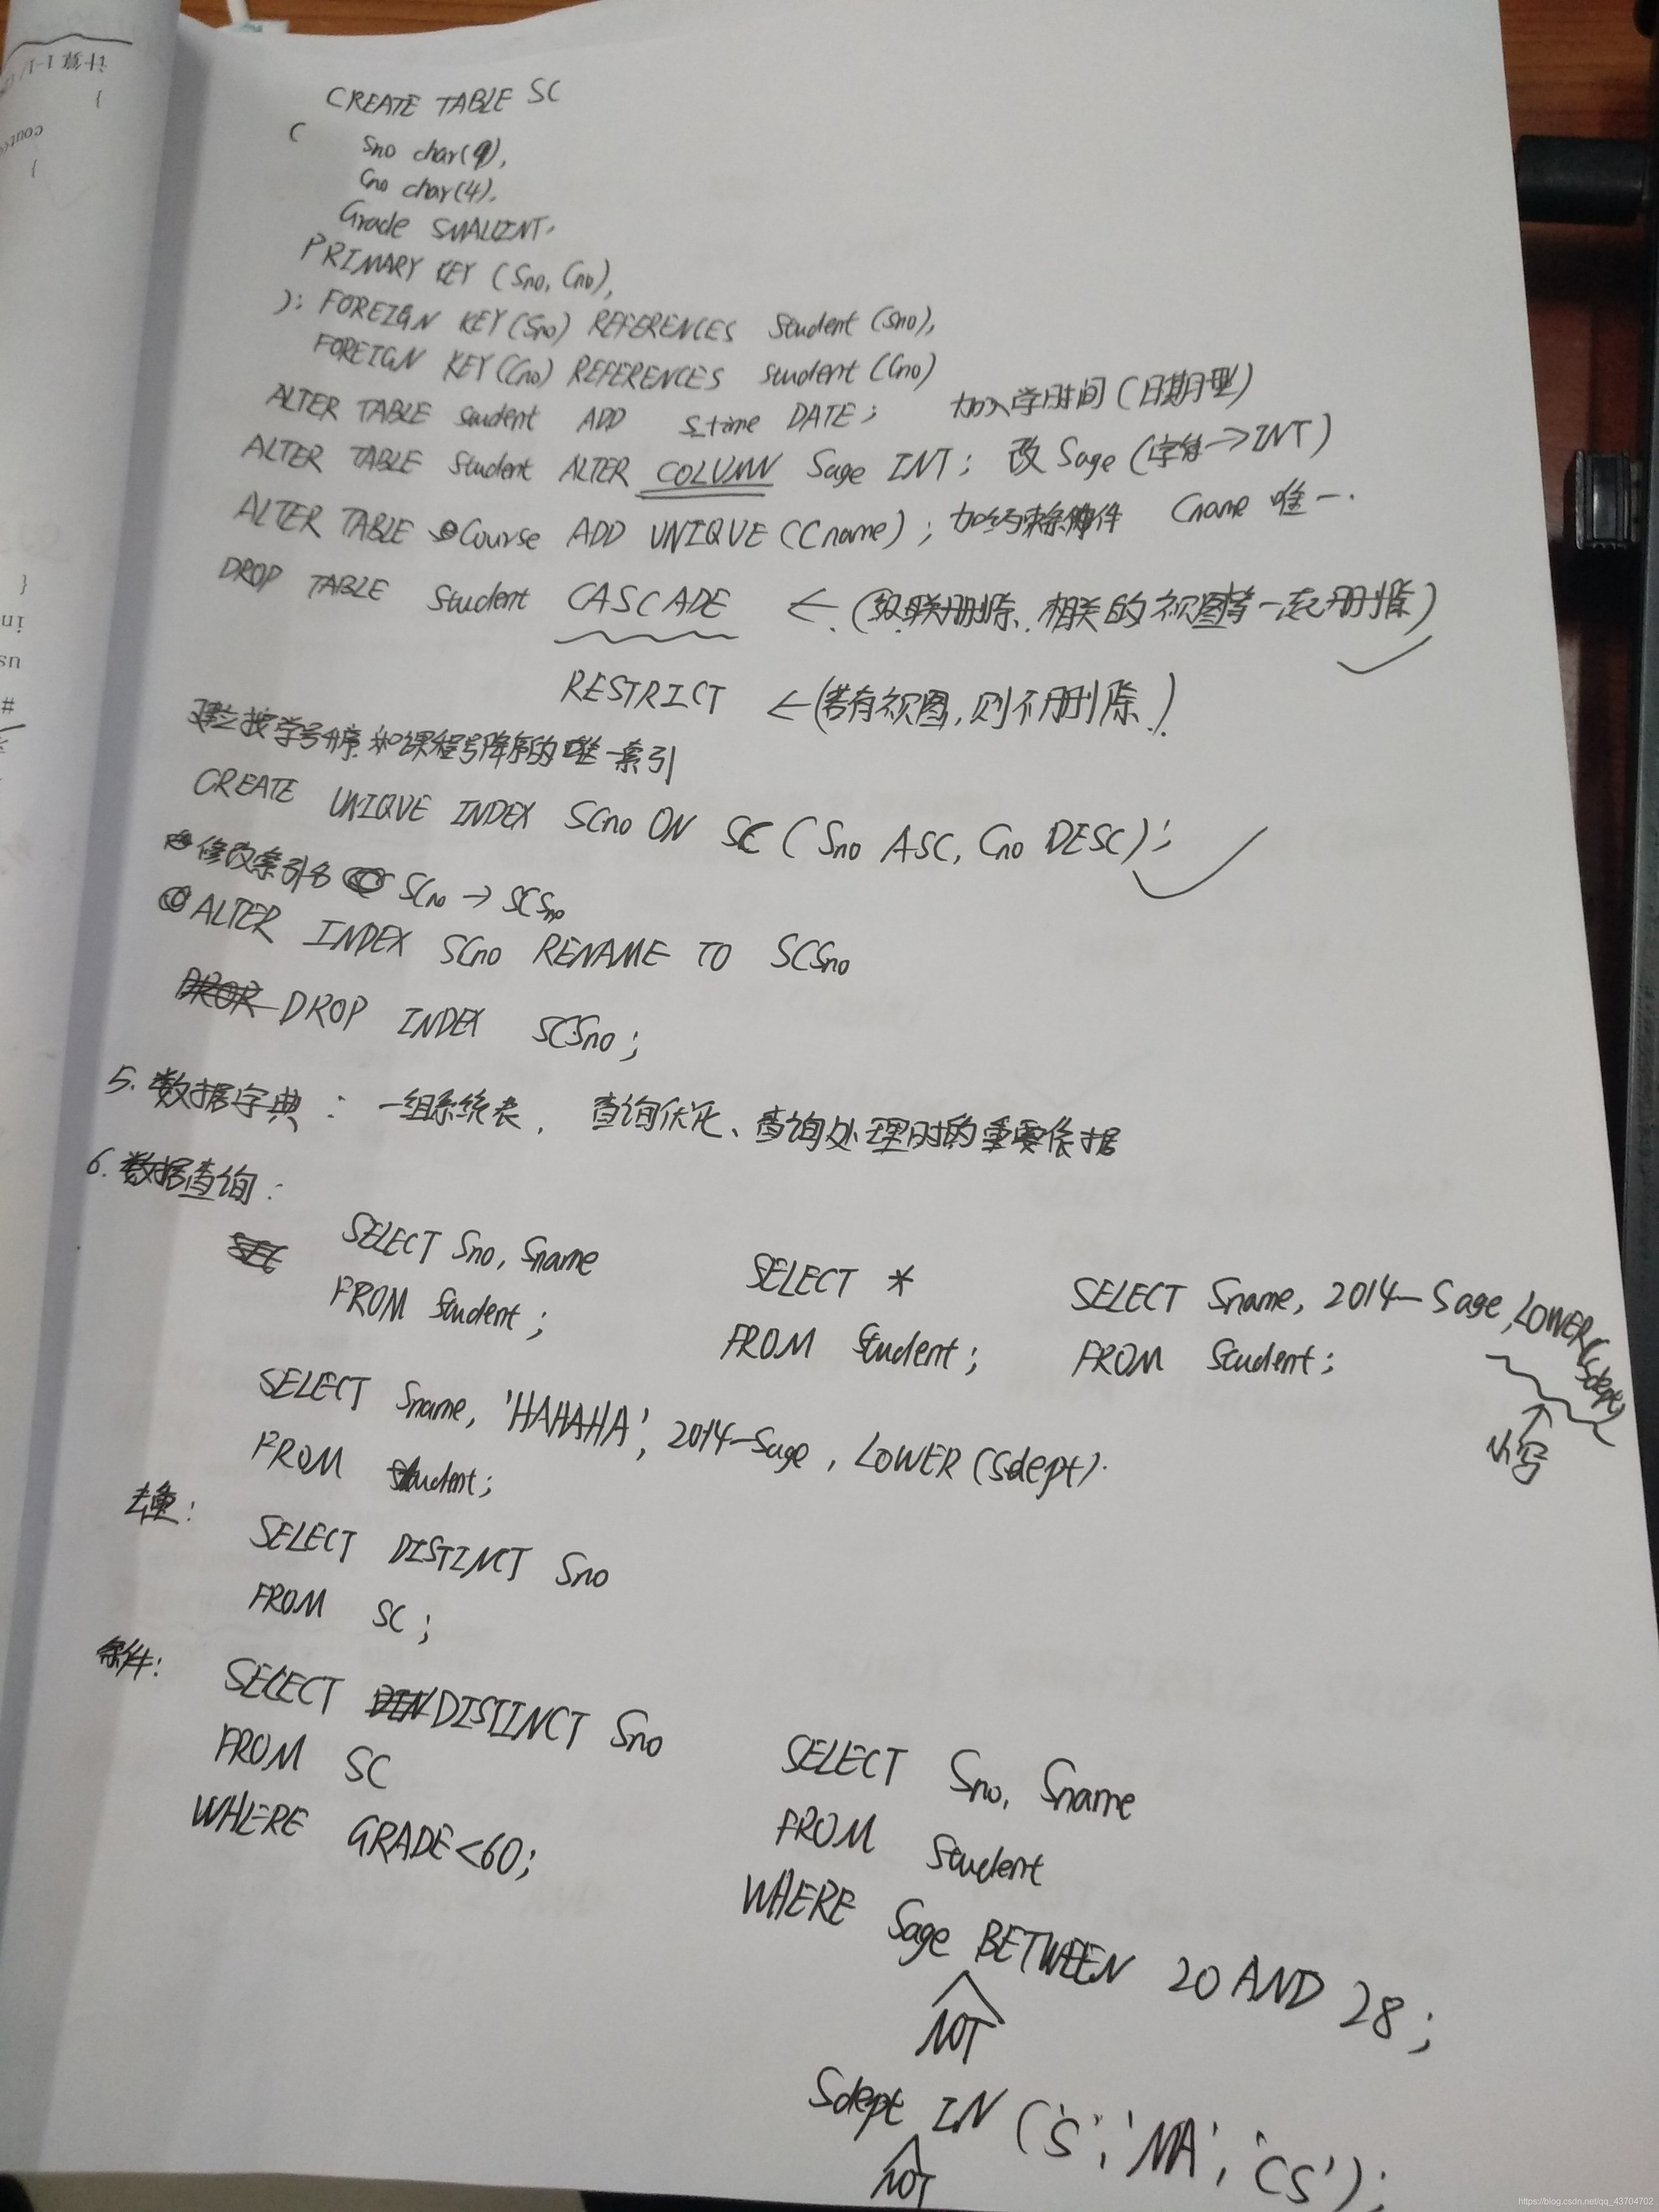 CREATE TABLE SC
(
Sno char(9),
Cno char(4).
Grade SMALLINT.
PRIMARY KEY (Sno, Cno),
); FOREIGN KEY(Sno) REFERENCES Student (Sno),
FOREIGN KEY(Cno) REFERENCES student (Cno)
ALTER TABLE student ADD S_time DATE; 加入学时间 (日期型)
ALTER TABLE Student ALTER COLUMN Sage INT; 改 Sage (字符→INT)
ALTER TABLE Course ADD UNIQUE (Cname); 加约束条件 Cname 唯一.
DROP TABLE Student CASCADE ← (级联删除, 相关的视图等一起删除)
RESTRICT ← (若有视图, 则不删除.)
建立按学号升序和课程号降序的唯一索引
CREATE UNIQUE INDEX SCno ON SC (Sno ASC, Cno DESC);
修改索引名 SCno → SCSno
ALTER INDEX SCno RENAME TO SCSno
DROP INDEX SCSno;
5. 数据字典: 一组系统表, 查询优化、查询处理时的重要依据
6. 数据查询:
SELECT Sno, Sname
FROM Student;
SELECT *
FROM Student;
SELECT Sname, 2014-Sage, LOWER(Sdept)
FROM Student;
小写
SELECT Sname, 'HAHAHA', 2014-Sage, LOWER (Sdept).
FROM Student;
去重:
SELECT DISTINCT Sno
FROM SC;
条件:
SELECT DISTINCT Sno
FROM SC
WHERE GRADE<60;
SELECT Sno, Sname
FROM Student
WHERE Sage BETWEEN 20 AND 28;
NOT
Sdept IN ('S', 'MA', 'CS');
NOT
计算 1-1/
}
}
}
#
https://blog.csdn.net/qq_43704702